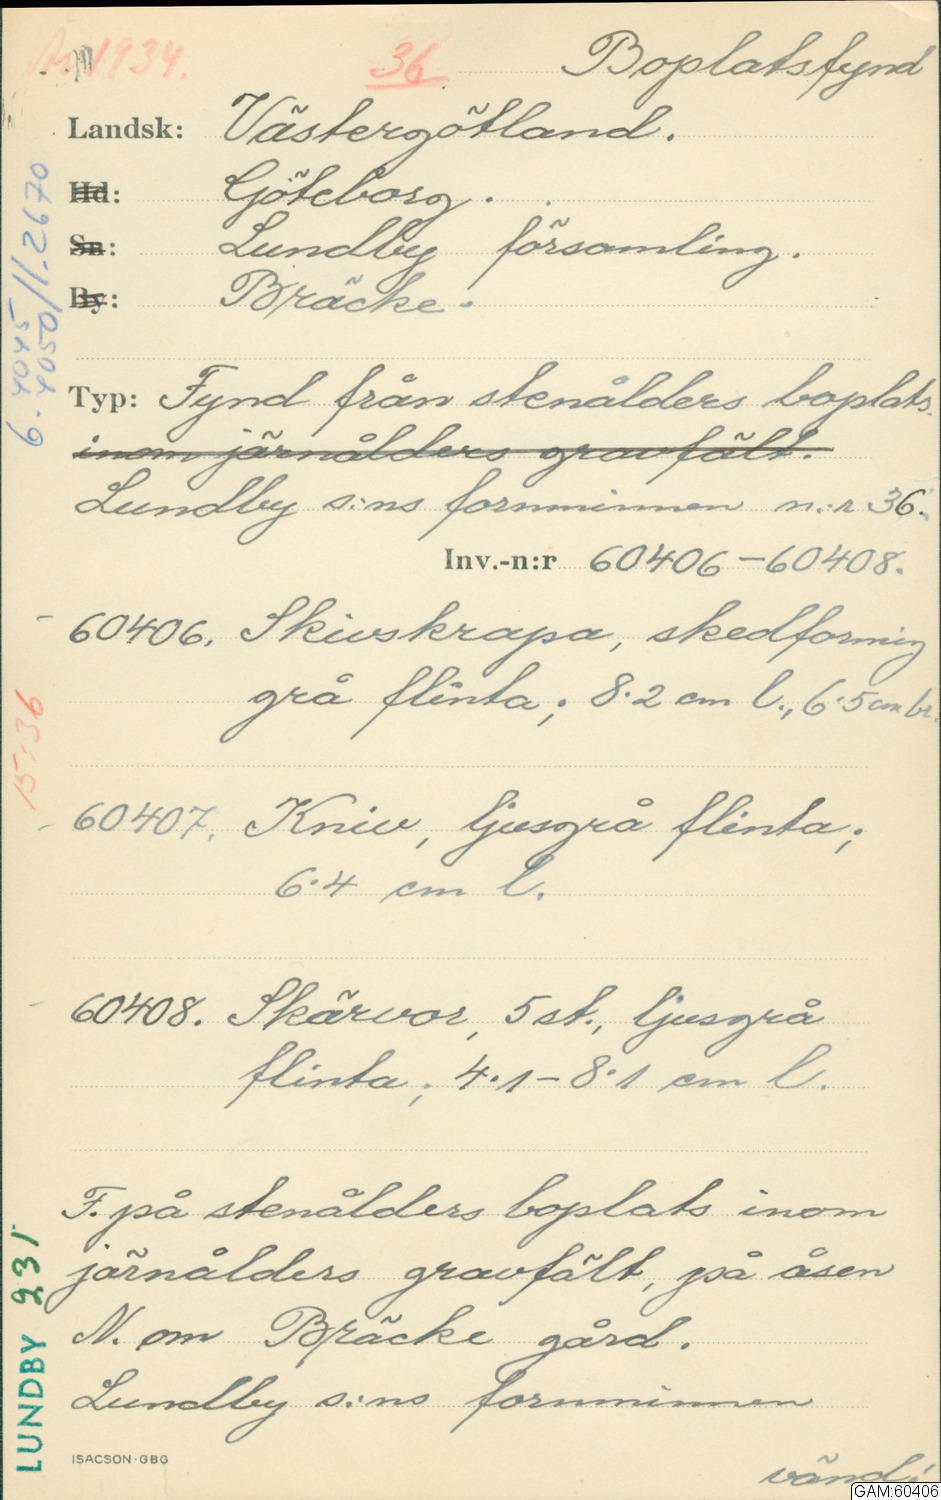 År 1934.
36
Boplatsfynd
Landsk: Västergötland.
Hd: Göteborg.
Sn: Lundby församling.
By: Bräcke.
Typ: Fynd från stenålders boplats.
inom järnålders gravfält.
Lundby s:ns fornminnen n:r 36.
Inv.-n:r 60406-60408.
60406. Skivskrapa, skedformig
grå flinta; 8.2 cm l., 6.5 cm br.
60407. Kniv, ljusgrå flinta;
6.4 cm l.
60408. Skärvor, 5 st., ljusgrå
flinta; 4.1-8.1 cm l.
F. på stenålders boplats inom
järnålders gravfält, på åsen
N. om Bräcke gård.
Lundby s:ns fornminnen
vänd!
ISACSON·GBG
6.4045
4050/1.2670
15:36
LUNDBY 231
GAM:60406